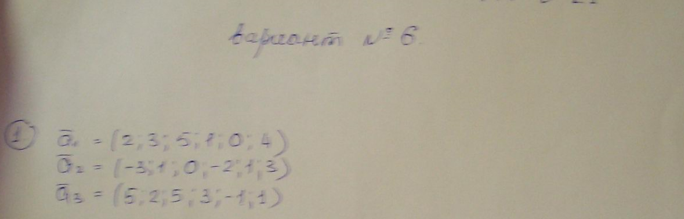 Вариант № 6.
① a̅₁ = (2; 3; 5; 1; 0; 4)
a̅₂ = (-3; 1; 0; -2; 1; 3)
a̅₃ = (5; 2; 5; 3; -1; 1)